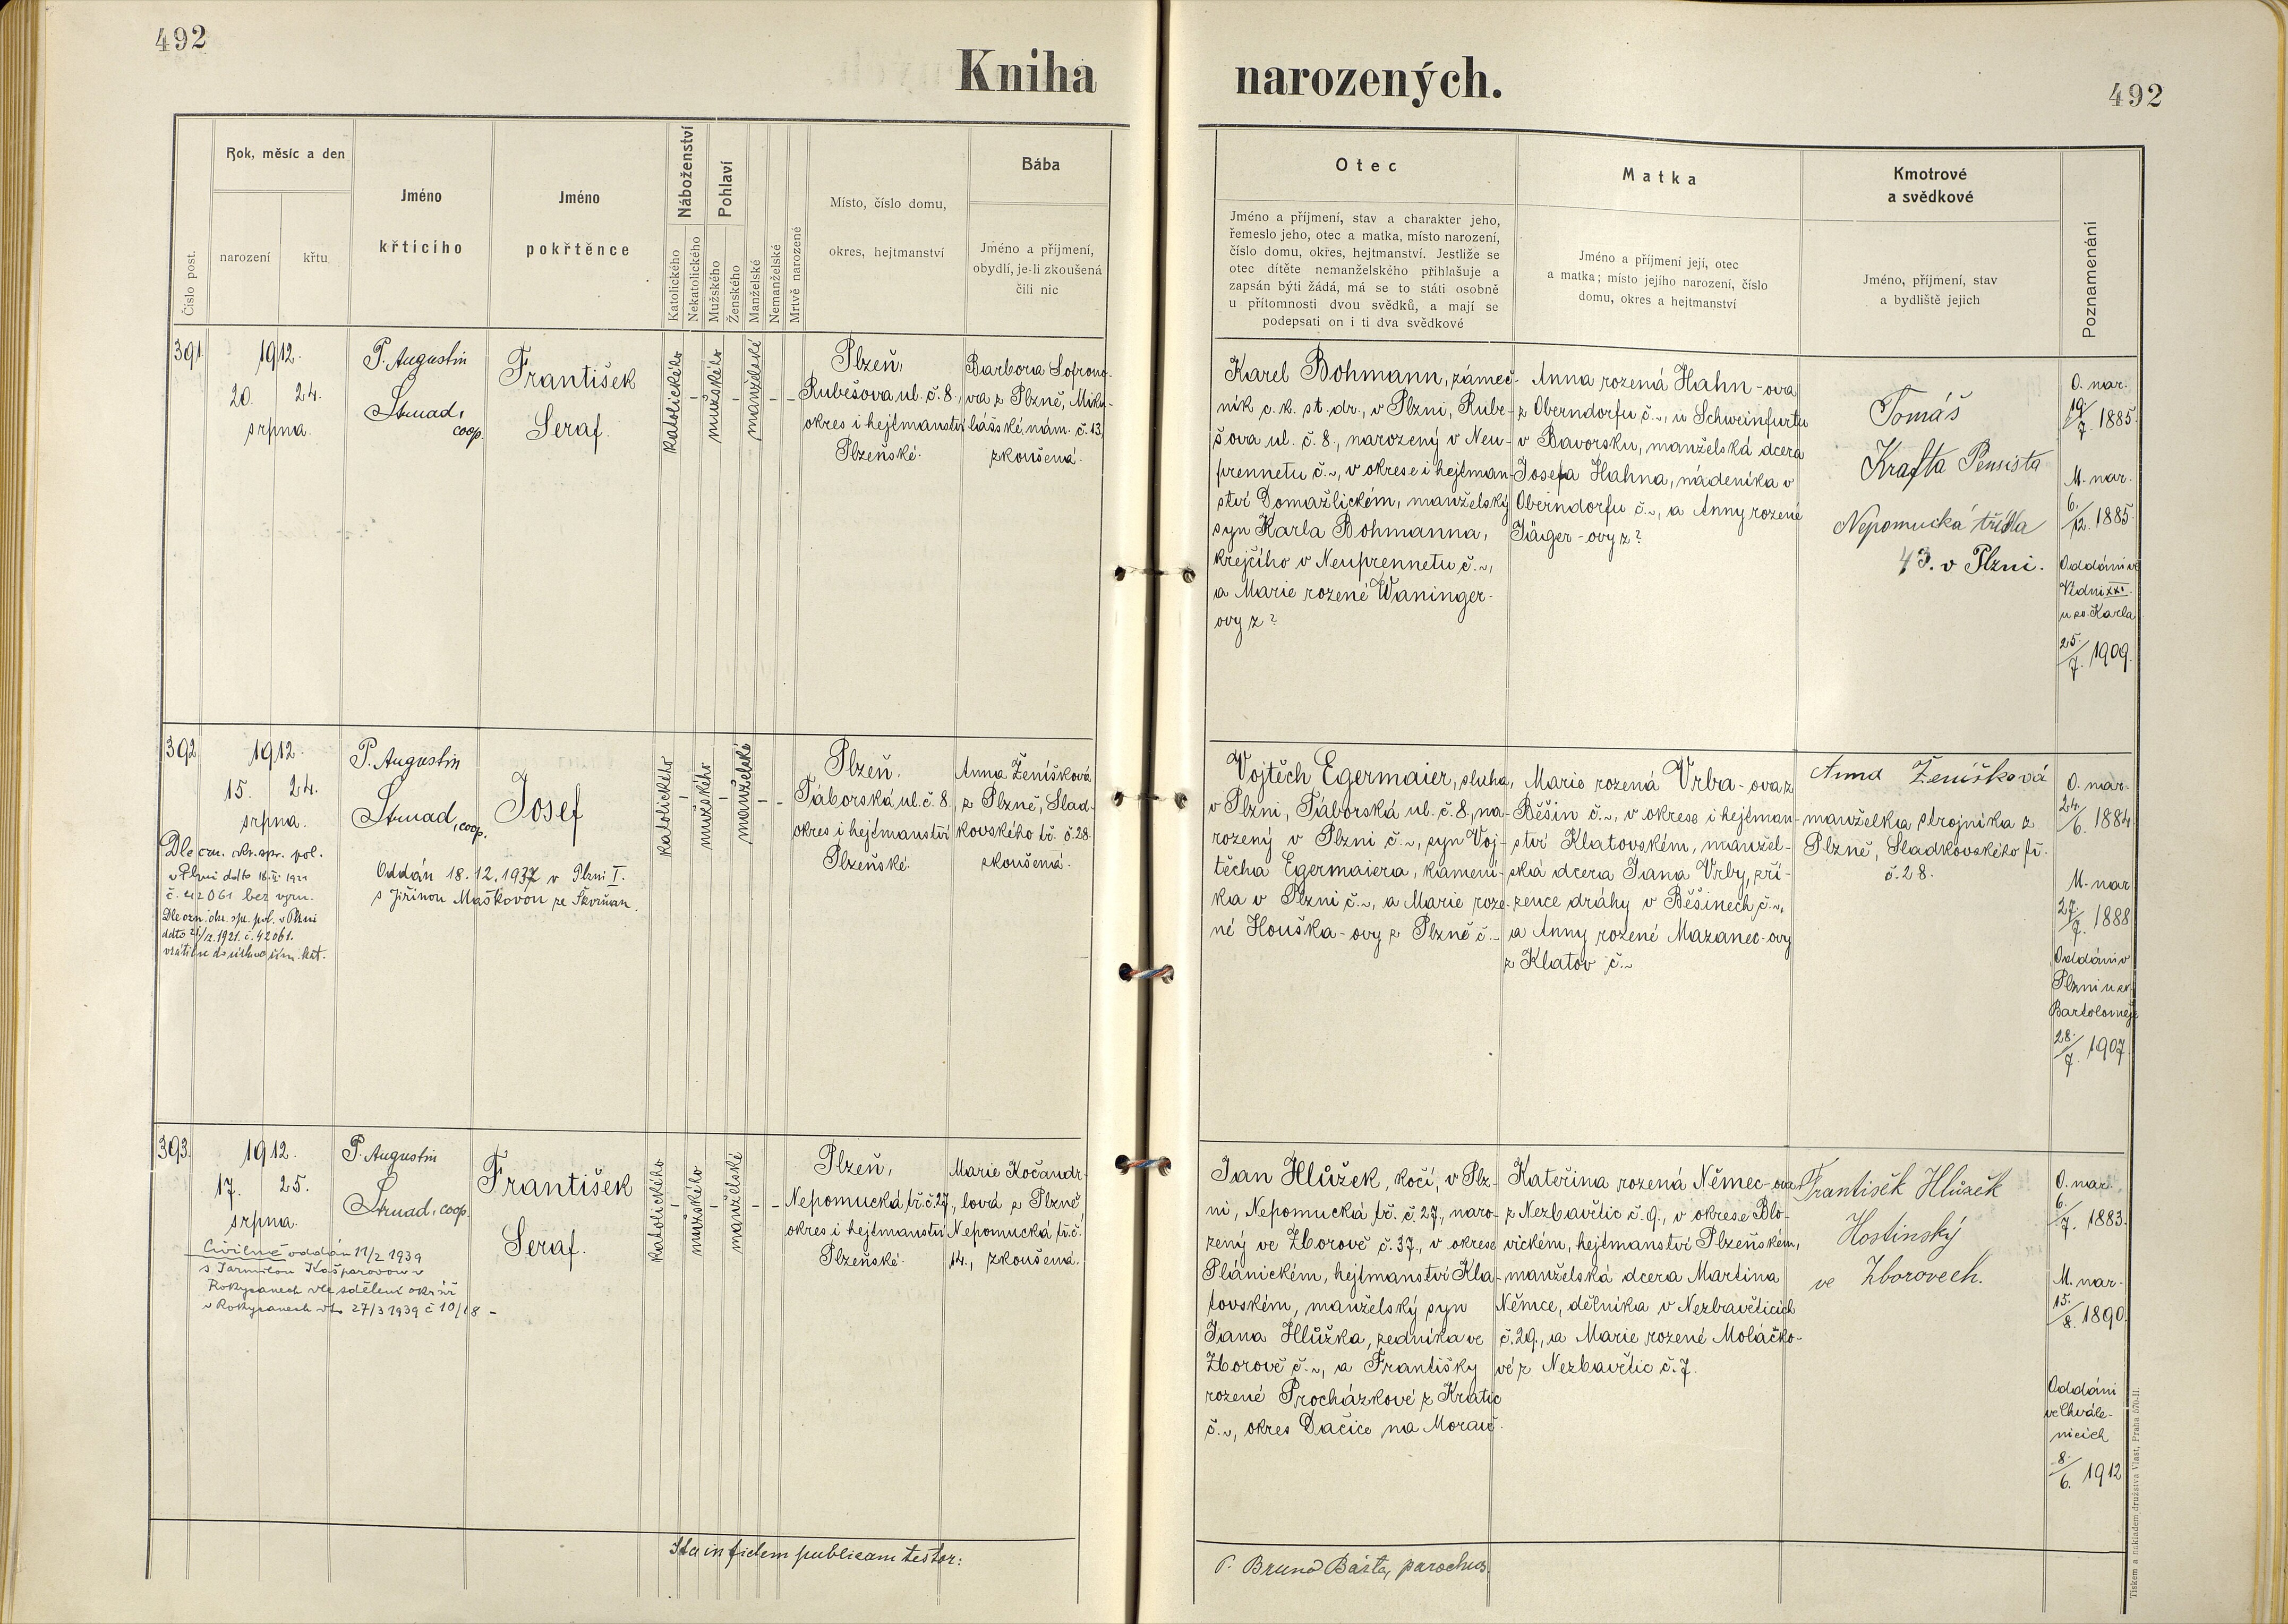 492
Kniha narozených.
492
Číslo post.
Rok, měsíc a den
narození
křtu
Jméno
křtícího
Jméno
pokřtěnce
Náboženství
Katolického
Nekatolického
Pohlaví
Mužského
Ženského
Manželské
Nemanželské
Mrtvě narozené
Místo, číslo domu,
okres, hejtmanství
Bába
Jméno a příjmení,
obydlí, je-li zkoušená
čili nic
Otec
Jméno a příjmení, stav a charakter jeho,
řemeslo jeho, otec a matka, místo narození,
číslo domu, okřes, hejtmanství. Jestliže se
otec dítěte nemanželského přihlašuje a
zapsán býti žádá, má se to státi osobně
u přítomnosti dvou svědků, a mají se
podepsati on i ti dva svědkové
Matka
Jméno a příjmení její, otec
a matka; místo jejího narození, číslo
domu, okres a hejtmanství
Kmotrové
a svědkové
Jméno, příjmení, stav
a bydliště jejich
Poznamenání
391.
1912.
20. 24.
srpna.
P. Augustin
Strnad,
coop.
František
Seraf.
katolického
-
mužského
-
manželské
- -
Plzeň,
Rubešova ul. č. 8.,
okres i hejtmanství
Plzeňské.
Barbora Sofrono-
va z Plzně, Miku-
lášské nám. č. 13.
zkoušená.
Karel Bohmann, zámeč-
ník c. k. st. dr., v Plzni, Rube-
šova ul. č. 8., narozený v Neu-
prennetu č. ~, v okrese i hejtman-
ství Domažlickém, manželský
syn Karla Bohmanna,
krejčího v Neuprennetu č. ~,
a Marie rozené Waninger-
ovy z ?
Anna rozená Hahn-ova
z Oberndorfu č. ~, u Schweinfurtu
v Bavorsku, manželská dcera
Josefa Hahna, nádeníka v
Oberndorfu č. ~, a Anny rozené
Jäger-ovy z ?
Tomáš
Krafta Pensista
Nepomucká třída
43. v Plzni.
O. nar.
19./7. 1885.
M. nar.
6./12. 1885.
Oddáni ve
Vídni XXI.
u sv. Karla
25./7. 1909.
392.
1912.
15. 24.
srpna.
P. Augustin
Strnad, coop.
Josef
katolického
-
mužského
-
manželské
- -
Plzeň.
Táborská ul. č. 8.
okres i hejtmanství
Plzeňské.
Anna Ženíšková
z Plzně, Slad-
kovského tř. č. 28.
zkoušená.
v Plzni ddto
č. 42061 bez vyzn.
1921. č. 42061.
Oddán 18.12.1937 v Plzni I.
s Jiřinou Maškovou ze Škvrňan.
Vojtěch Egermaier, sluha,
v Plzni, Táborská ul. č. 8., na-
rozený v Plzni č. ~, syn Voj-
těcha Egermaiera, kamení-
ka v Plzni č. ~, a Marie roze-
né Houška-ovy z Plzně č. ~
Marie rozená Vrba-ova z
Běšin č. ~, v okrese i hejtman-
ství Klatovském, manžel-
ská dcera Jana Vrby, zří-
zence dráhy v Běšinech č. ~,
a Anny rozené Mazanec-ovy
z Klatov č. ~
Anna Ženíšková
manželka strojníka z
Plzně, Sladkovského tř.
č. 28.
O. nar.
24./6. 1884.
M. nar.
27./7. 1888.
Oddáni v
Plzni u sv.
Bartoloměje
28./7. 1907.
393.
1912.
17. 25.
srpna.
P. Augustin
Strnad, coop.
František
Seraf.
katolického
-
mužského
-
manželské
- -
Plzeň,
Nepomucká tř. č. 27.,
okres i hejtmanství
Plzeňské.
Marie Kočandr-
lová z Plzně,
Nepomucká tř. č.
14., zkoušená.
Civilně oddán 11/2 1939
s Jarmilou Kašparovou v
Rokycanech dle sdělení okr. úř.
v Rokycanech 27/3 1939 č 10/18 -
Jan Hlůžek, kočí, v Plz-
ni, Nepomucká tř. č. 27., naro-
zený ve Zborově č. 37., v okrese
Plánickém, hejtmanství Kla-
tovském, manželský syn
Jana Hlůžka, zedníka ve
Zborově č. ~, a Františky
rozené Procházkové z Kratic
č. ~, okres Dačice na Moravě.
Kateřina rozená Němec-ova
z Nezbavětic č. 9., v okrese Blo-
vickém, hejtmanství Plzeňském,
manželská dcera Martina
Němce, dělníka v Nezbavěticích
č. 29., a Marie rozené Moláčko-
vé z Nezbavětic č. 7.
František Hlůzek
Hostinský
ve Zborovech.
O. nar.
6./7. 1883.
M. nar.
15./8. 1890.
Oddáni
ve Chvále-
nicích
8./6. 1912
Ita in fidem publicam testor:
P. Bruno Bárta, parochus.
Tiskem a nákladem družstva Vlast, Praha 570-II.